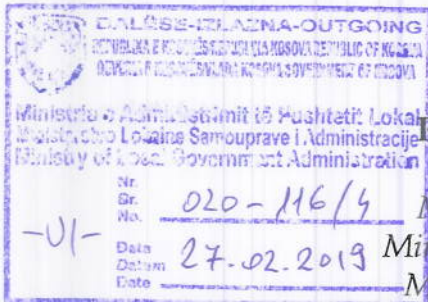 DALËSE-IZLAZNA-OUTGOING
REPUBLIKA E KOSOVËS REPUBLIKA KOSOVA REPUBLIC OF KOSOVA
Ministria e Administrimit të Pushtetit Lokal
Ministarstvo Lokalne Samouprave i Administracije
Ministry of Local Government Administration
Nr.
Br.
No. 020-116/4
-01-
Data
Datum 27.02.2019 Min
Date M